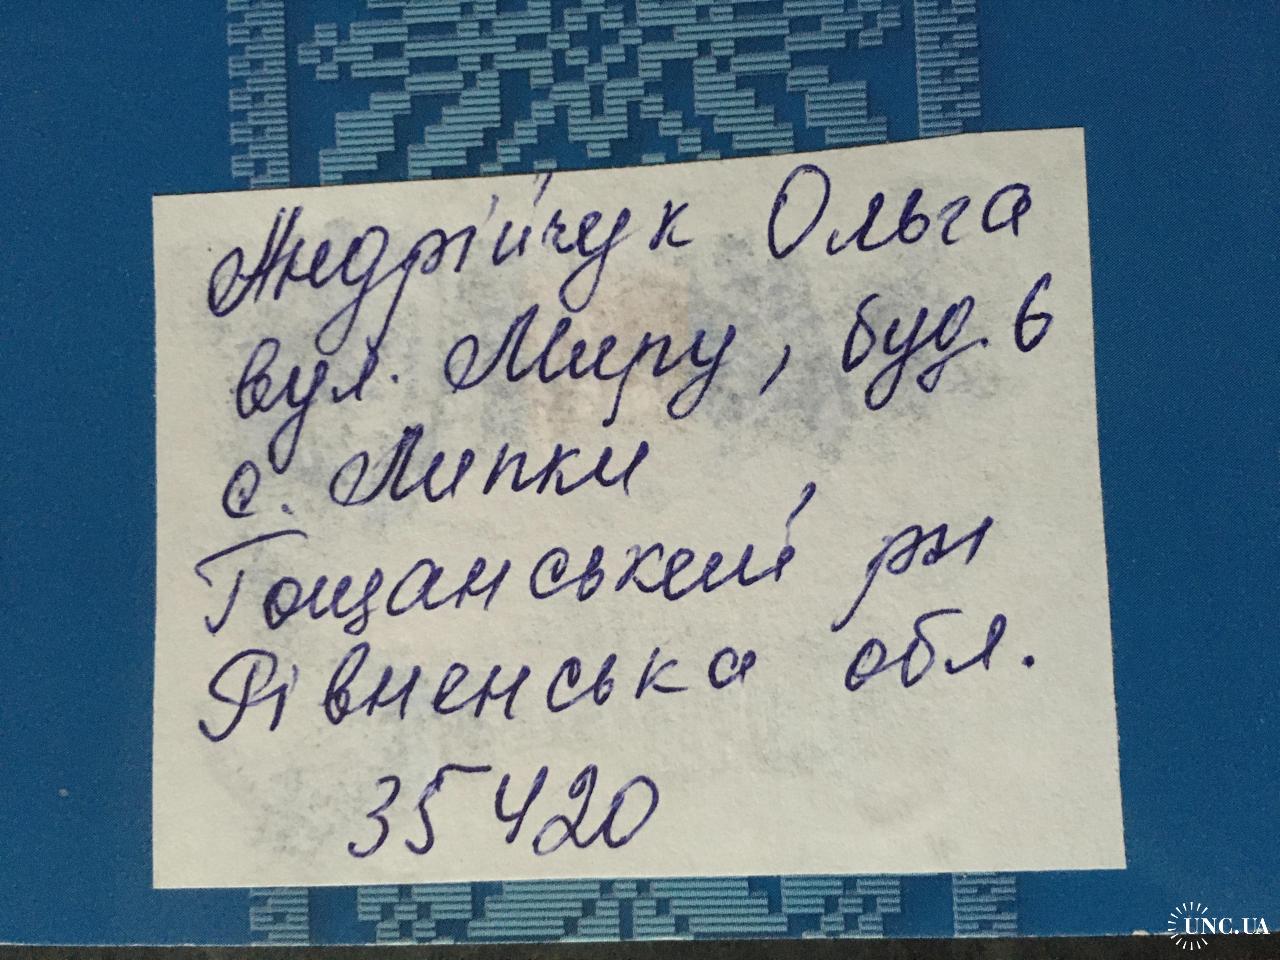 Андрійчук Ольга
вул. Миру, буд. 6
с. Липки
Гощанський рн
Рівненська обл.
35420
UNC.UA